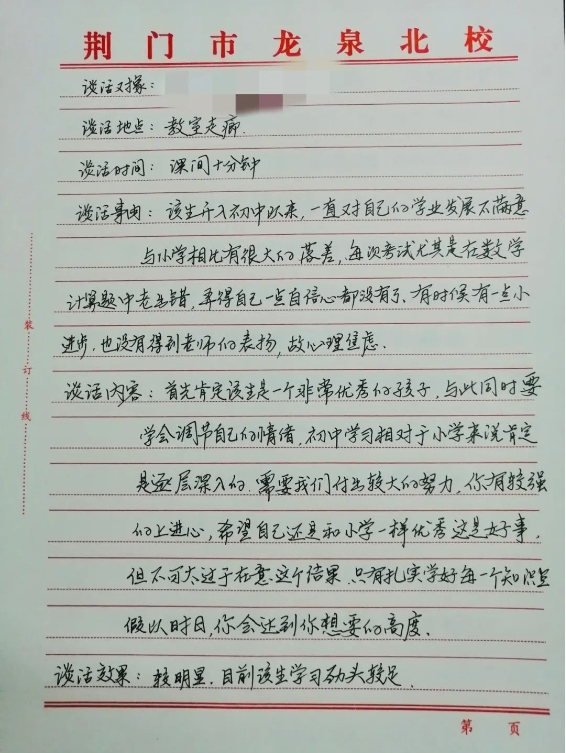 荆门市龙泉北校
谈话对象：
谈话地点：教室走廊.
谈话时间：课间十分钟
谈话事由：该生升入初中以来，一直对自己的学业发展不满意
与小学相比有很大的落差，每次考试尤其是在数学
计算题中老出错，弄得自己一点自信心都没有了、有时候有一点小
进步.也没有得到老师的表扬，故心理焦虑.
谈话内容：首先肯定该生是一个非常优秀的孩子，与此同时要
学会调节自己的情绪，初中学习相对于小学来说肯定
是逐层深入的.需要我们付出较大的努力，你有较强
的上进心，希望自己还是和小学一样优秀这是好事，
但不可太过于在意这个结果.只有扎实学好每一个知识点
假以时日，你会达到你想要的高度.
谈话效果：较明显.目前该生学习劲头较足.
装订线
第 页